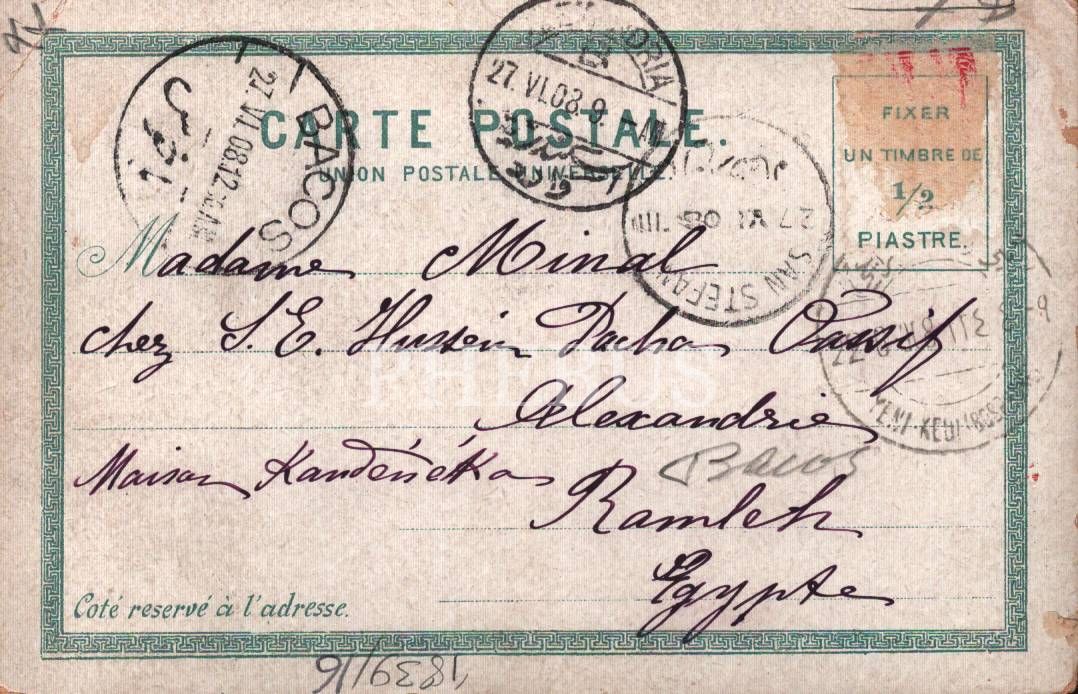 CARTE POSTALE.
UNION POSTALE UNIVERSELLE.
FIXER
UN TIMBRE DE
1/2
PIASTRE.
BACOS
27.VI.08.12
ALEXANDRIA
27.VI.08.9-AM
SAN STEFANO
27 VI 08
YENI-KEUI
Madame Minal
chez S. E. Hussein Pacha Vassif
Alexandrie
Bacos
Maison
Ramleh
Egypte
PHEBUS
Coté reservé à l'adresse.
1839/16